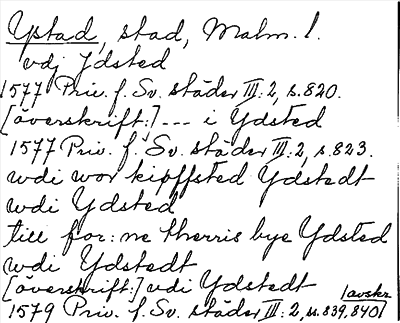 Ystad, stad, Malm. l.
vdj Ydsted
1577 Priv. f. Sv. städer III:2, s.820.
[överskrift:] --- i Ydsted
1577 Priv. f. Sv. städer III:2, s.823.
wdi wor kipffsted Ydstedt
wdi Ydsted
till for:ne therris bye Ydsted
wdi Ydstedt
[överskrift:] vdi Ydstedt
1579 Priv. f. Sv. städer III:2, ss.839,840/
/avskr.